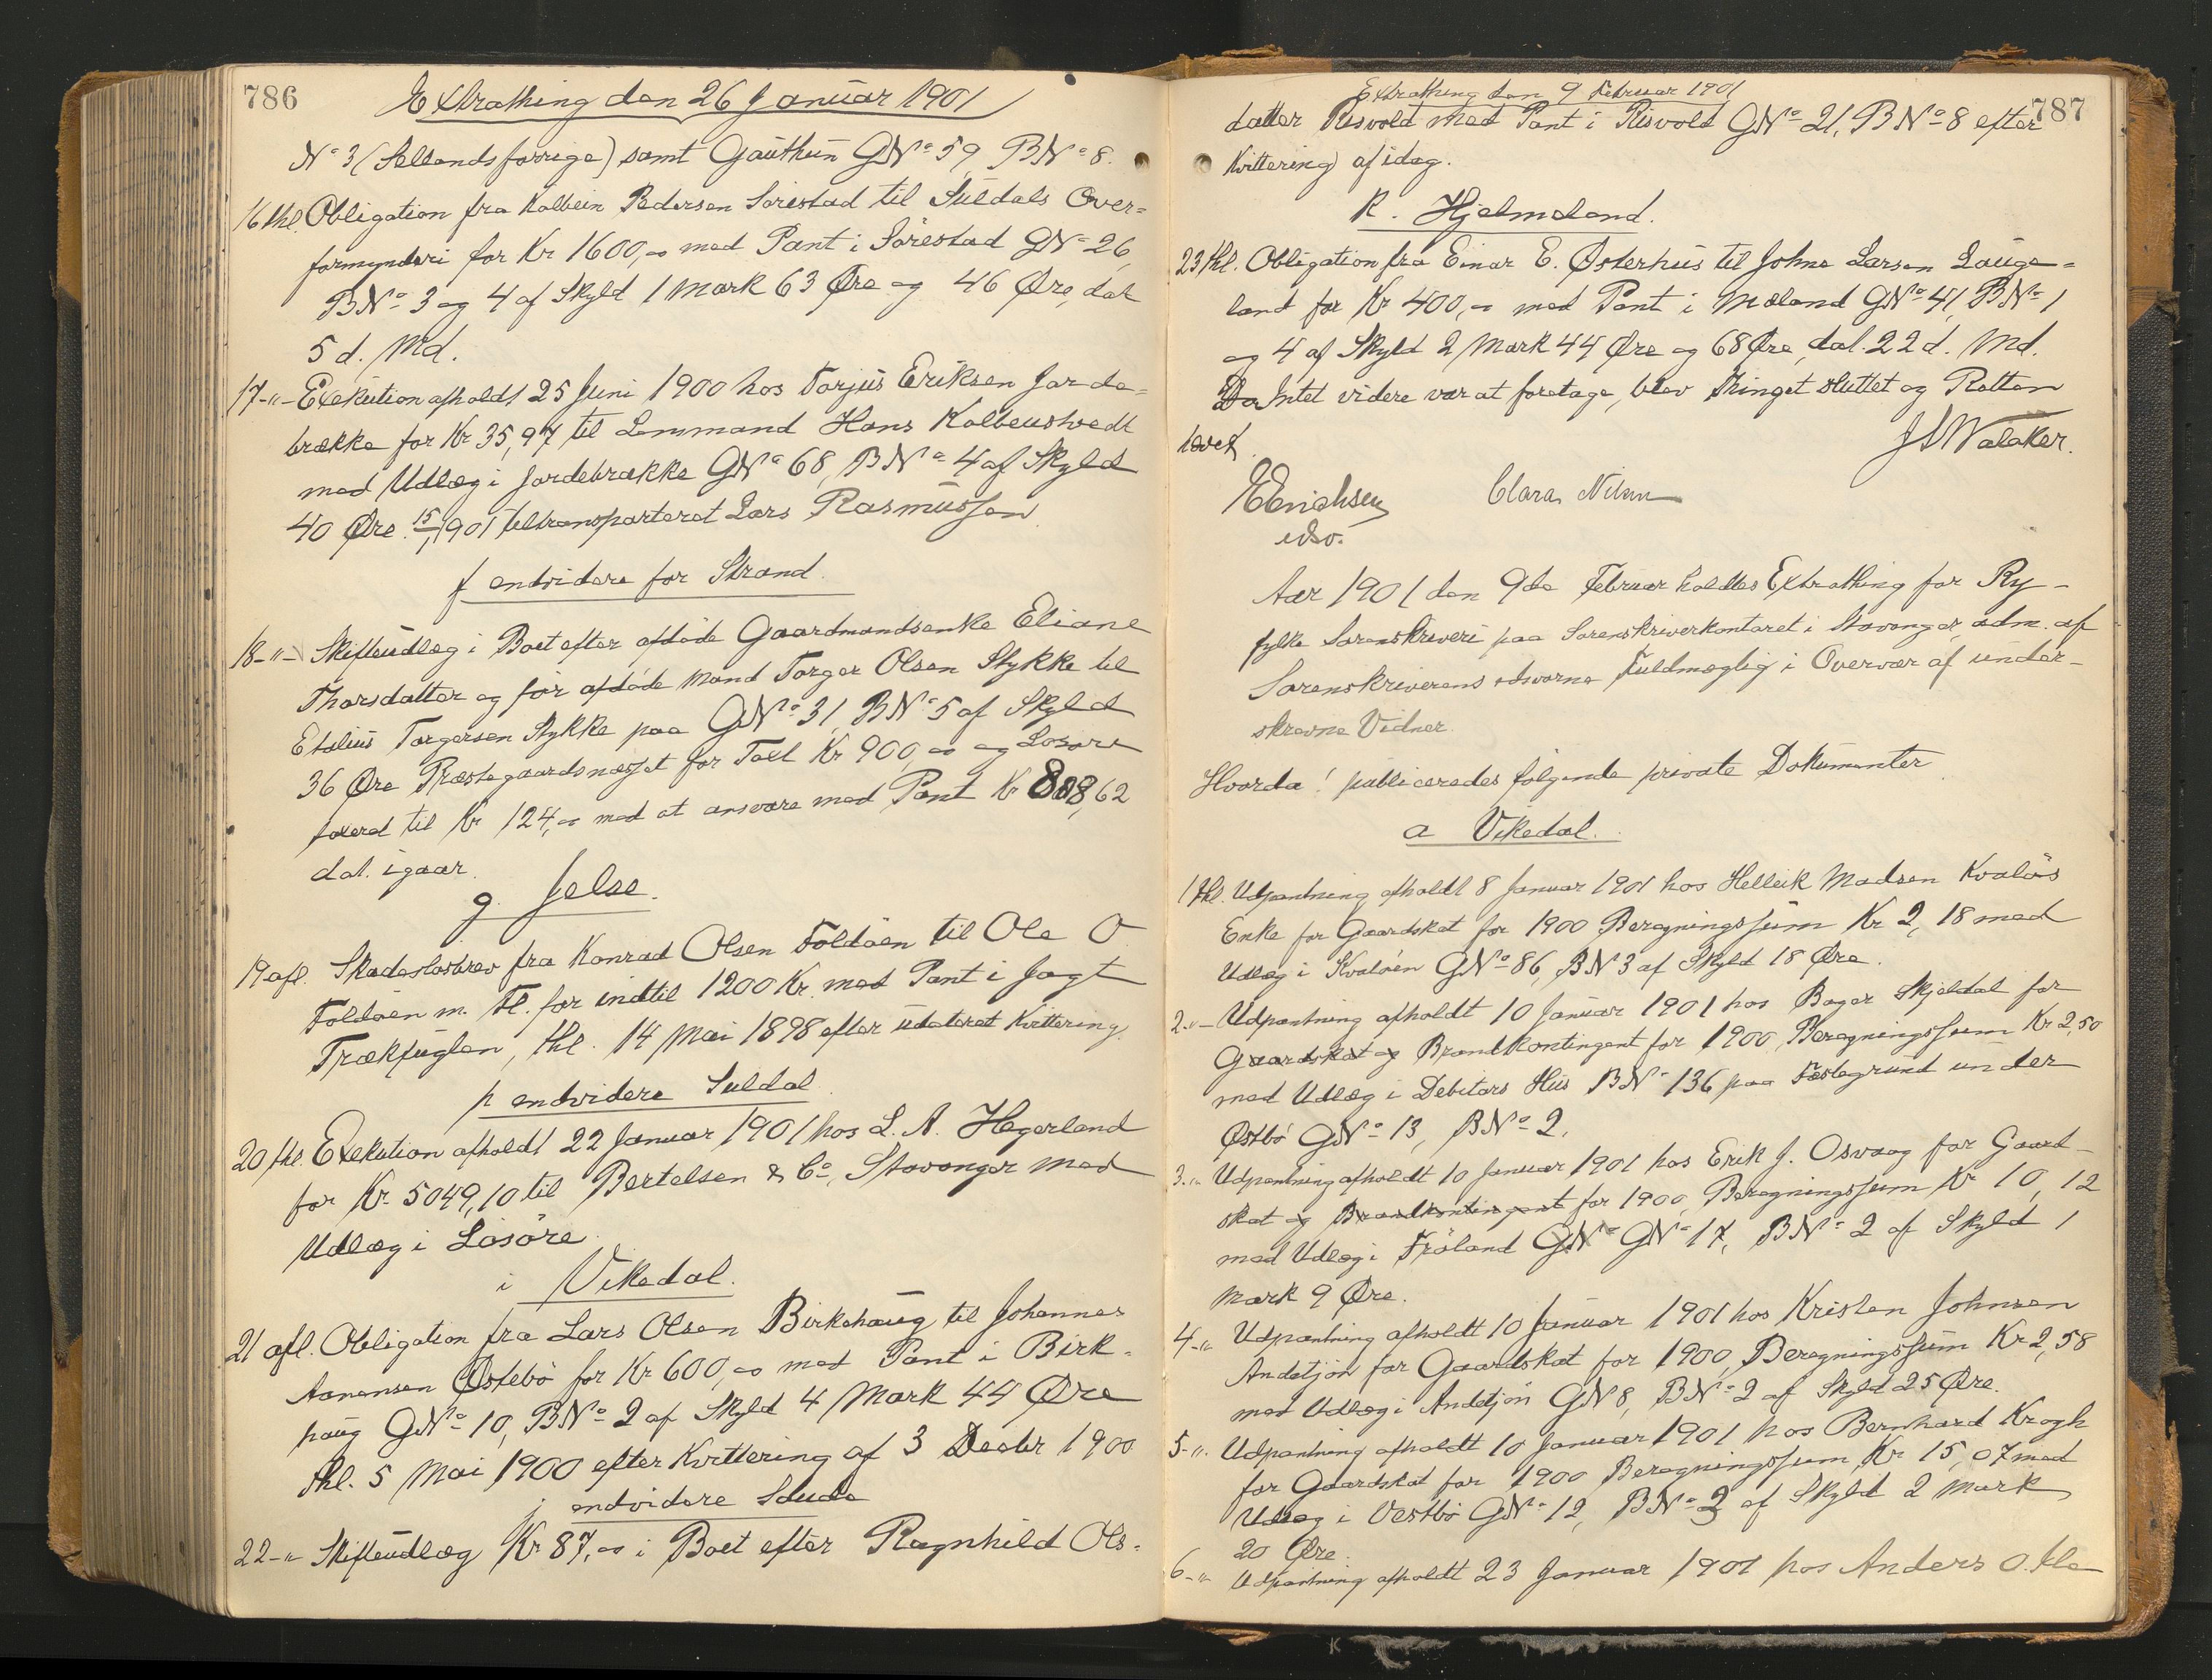 786
Extrathing den 26 Januar 1901
No 3 (Sellandsforrige) samt Gauthun GNo 59, BNo 8.
16 thl. Obligation fra Kolbein Pedersen Sørestad til Suldals Over=
formynderi for Kr 1600,00 med Pant i Sørestad GNo 26,
BNo 3 og 4 af Skyld 1 Mark 63 Øre og 46 Øre, dat
5 d. Md.
17-"- Exekution afholdt 25 Juni 1900 hos Torjus Eriksen Jorde=
brække for Kr 35,97 til Lensmand Hans Kolbenstvedt
med Udlæg i Jordebrække GNo 68, BNo 4 af Skyld
40 Øre. 15/1 1901 tiltransporteret Lars Rasmussen
f endvidere for Strand.
18-"- Skifteudlæg i Boet efter afdøde Gaardmandsenke Eliane
Thorsdatter og før afdøde Mand Torger Olsen Stykke til
Etslius Torgersen Stykke paa GNo 31, BNo 5 af Skyld
36 Øre Præstegaardsnæsset for Taxt Kr 900,00 og Løsøre
taxerd til Kr 124,00 med at ansvare med Pant Kr 808,62
dat. igaar.
g. Jelse.
19 afl. Skadesløsbrev fra Konrad Olsen Foldøen til Ole O
Foldøen m. Fl. for indtil 1200 Kr. med Pant i Jagt
Trækfuglen, thl. 14 Mai 1898 efter udateret Kvittering.
h endvidere Suldal
20 thl. Exekution afholdt 22 Januar 1901 hos L. A. Hegerland
for Kr. 5049,10 til Bertelsen & Co, Stavanger med
Udlæg i Løsøre
i Vikedal.
21 afl. Obligation fra Lars Olsen Birkehaug til Johannes
Aanensen Østebø for Kr 600,00 med Pant i Birk-
haug GNo 10, BNo 2 af Skyld 4 Mark 44 Øre
thl. 5 Mai 1900 efter Kvittering af 3 Decbr 1900
j endvidere Saude
22-"- Skifteudlæg Kr 87,00 i Boet efter Ragnhild Ols-
787
Extrathing den 9 Februar 1901
datter Risvold med Pant i Risvold GNo 21, BNo 8 efter
Kvittering af idag.
K. Hjelmeland.
23 thl. Obligation fra Einar E. Østerhus til Johne Larsen Lauge=
land for Kr 400,00 med Pant i Mæland GNo 41, BNo 1
og 4 af Skyld 2 Mark 44 Øre og 68 Øre, dat. 22 d. Md.
Da Intet videre var at foretage, blev Thinget sluttet og Retten
hævet.
J S Walaker.
E Erichsen
edsv.
Clara Nilsen
Aar 1901 den 9de Februar holdtes Extrathing for Ry-
fylke Sorenskriveri paa Sorenskriverkontoret i Stavanger, adm. af
Sorenskriverens edsvorne Fuldmægtig i Overvær af under-
skrevne Vidner.
Hvorda! publiceredes følgende private Dokumenter
a Vikedal.
1 thl. Udpantning afholdt 8 Januar 1901 hos Helleik Madsen Kvaløs
Enke for Gaardskat for 1900 Beregningssum Kr 2,18 med
Udlæg i Kvaløen GNo 86, BN 3 af Skyld 18 Øre.
2-"- Udpantning afholdt 10 Januar 1901 hos Bager Skjeldal for
Gaardskat og Brandkontingent for 1900, Beregningssum Kr 2,50
med Udlæg i Debitors Hus BNo 136 paa Fæstegrund under
Østbø GNo 13, BNo 2.
3-"- Udpantning afholdt 10 Januar 1901 hos Erik J. Osvaag for Gaard-
skat og Brandkontingent for 1900, Beregningssum Kr 10,12
med Udlæg i Frøland GNo GNo 17, BNo 2 af Skyld 1
Mark 9 Øre.
4-"- Udpantning afholdt 10 Januar 1901 hos Kristen Johnsen
Andetjøn for Gaardskat for 1900, Beregningssum Kr 2,58
med Udlæg i Andetjøn GN 8, BNo 2 af Skyld 25 Øre.
5-"- Udpantning afholdt 10 Januar 1901 hos Bernhard Krogh
for Gaardskat for 1900 Beregningssum Kr 15,07 med
Udlæg i Vestbø GNo 12, BNo 2 af Skyld 2 Mark
20 Øre.
6-"- Udpantning afholdt 23 Januar 1901 hos Anders